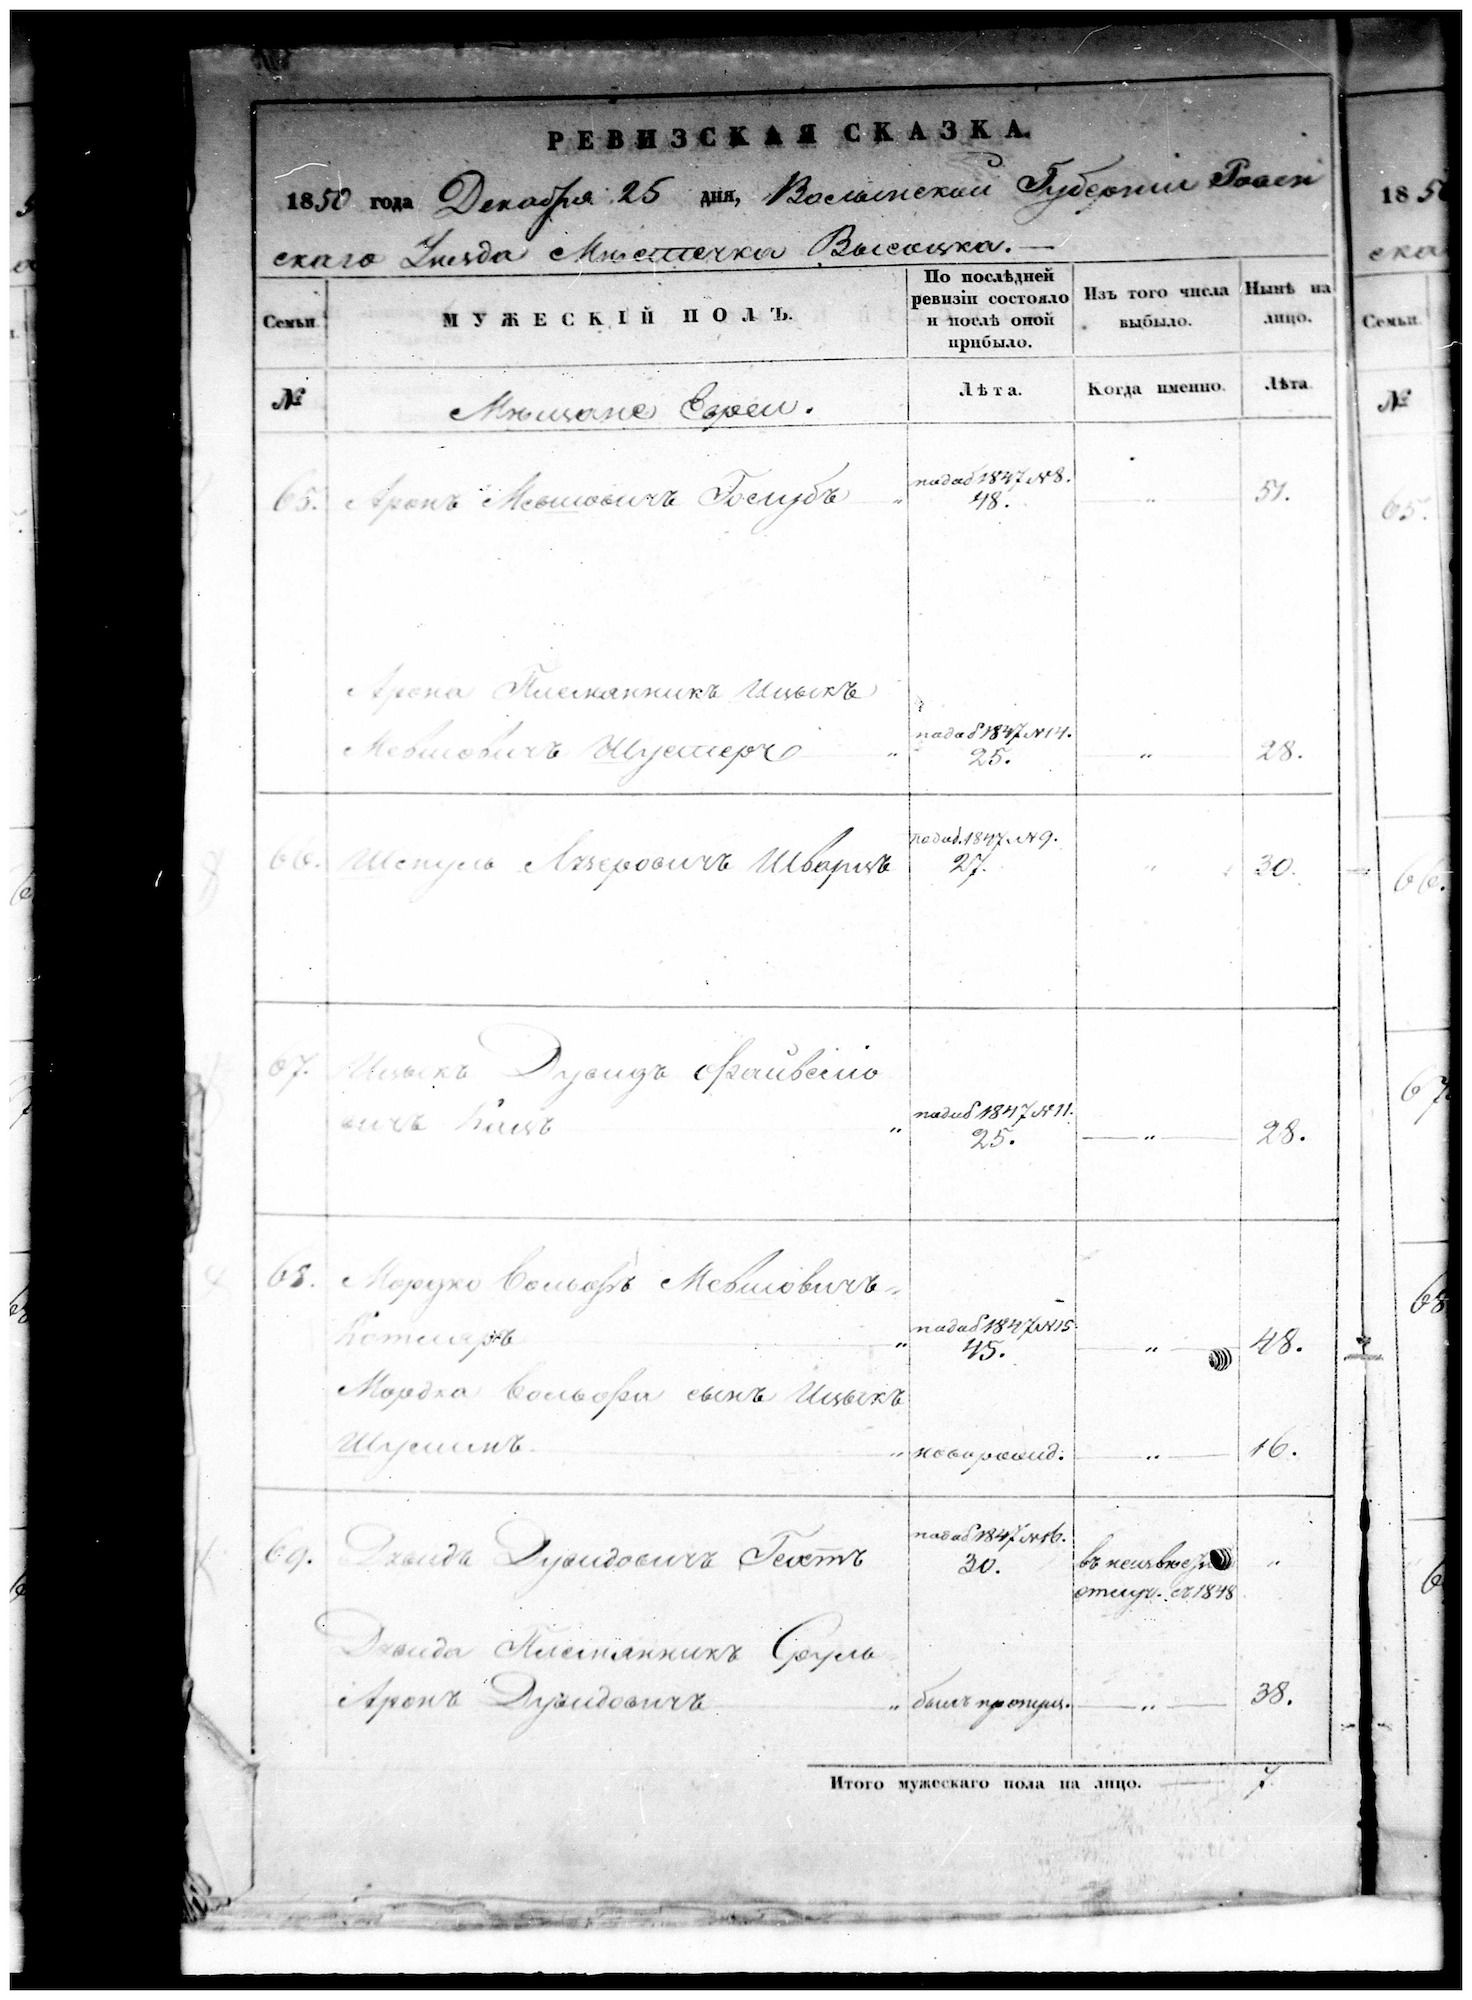 РЕВИЗСКАЯ СКАЗКА.
1850 года Декабря 25 дня, Волынской Губернiи Ровен
скаго Уѣзда Мѣстечка Высоцка.—
Семьи.
МУЖЕСКIЙ ПОЛЪ.
По послѣдней ревизiи состояло и послѣ оной прибыло.
Изъ того числа выбыло.
Нынѣ на лицо.
№
Мѣщане Евреи.
Лѣта.
Когда именно.
Лѣта.
65. Аронъ Мевшовичъ Голубъ " 1847 №8. 48. " 51.
Арона Племянникъ Ицыкъ
Мевшовичъ Шустеръ " 1847 №14. 25. " 28.
66. Лейзеровичъ Шварцъ 1847 №9. 27. " 30.
67. Ицыкъ Дувидъ Файвелiо
вичъ Кацъ " 1847 №11. 25. " 28.
68. Мордко Вольфъ Мевшовичъ
Котляръ " 1847 №15 45. " 48.
Мордка Вольфа сынъ Ицыкъ
" новорожд. " 16.
69. Давидъ Дувидовичъ 1847 №16. 30. въ неизвѣс
отлуч. съ 1848 "
Давида Племянникъ Сруль
Аронъ Дувидовичъ " былъ пропущ. " 38.
Итого мужескаго пола на лицо. 7
1850
ска
Семьи.
№
65.
66.
67
68